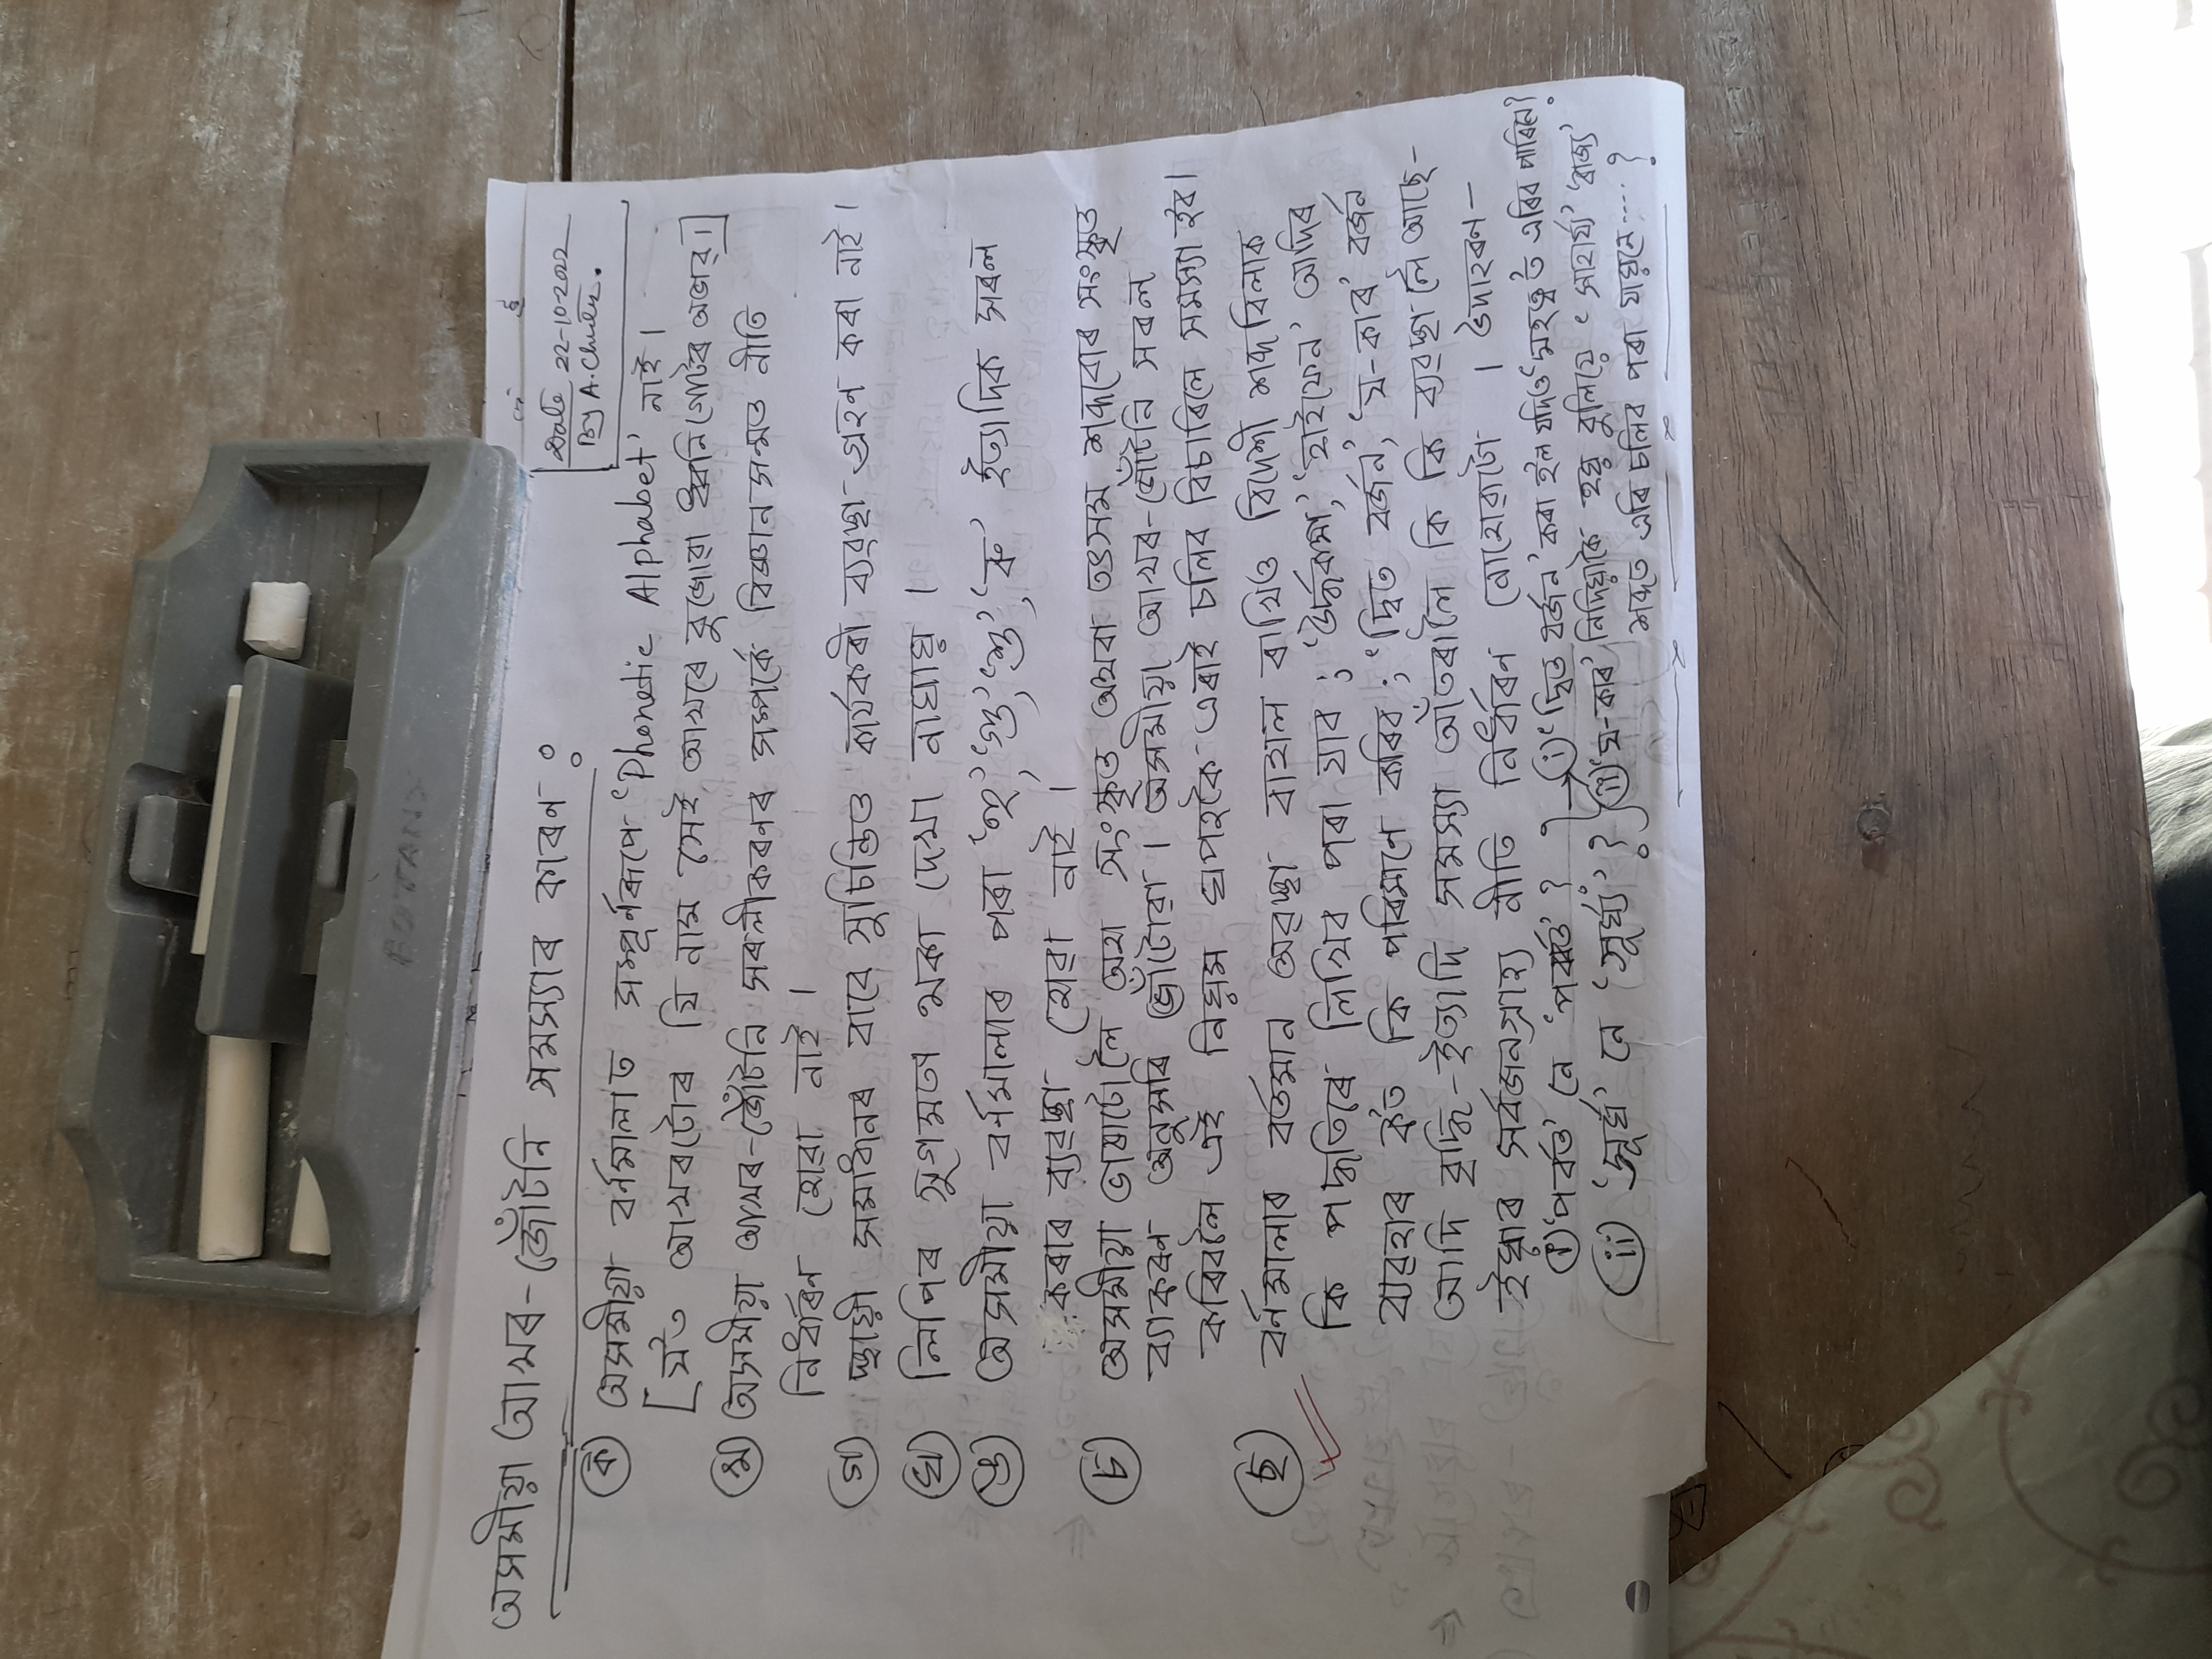 অসমীয়া আখৰ-জোঁটনি সমস্যাৰ কাৰণ :
Date 22-10-2022
By A. Chutia.
ক অসমীয়া বৰ্ণমালাত সম্পূৰ্ণৰূপে 'Phonetic Alphabet' নাই ।
[য'ত আখৰটোৰ যি নাম সেই আখৰে বুজোৱা ধ্বনিগোটৰ অভাৱ ।]
খ অসমীয়া আখৰ-জোঁটনি সৰলীকৰণৰ সম্পৰ্কে বিজ্ঞান সন্মত নীতি
নিৰ্ধাৰণ হোৱা নাই ।
গ স্থায়ী সমাধানৰ বাবে সুচিন্তিত কাৰ্যকৰী ব্যৱস্থা গ্ৰহণ কৰা নাই ।
ঘ লিপিৰ সুগমতা থকা দেখা নাযায় ।
ঙ অসমীয়া বৰ্ণমালাৰ পৰা ইত্যাদিক সৰল
কৰাৰ ব্যৱস্থা হোৱা নাই ।
চ অসমীয়া ভাষাটোলৈ অহা সংস্কৃত অথবা তৎসম শব্দবোৰ সংস্কৃত
ব্যাকৰণ অনুসৰি জোঁটোৱা । অসমীয়া আখৰ-জোঁটনি সৰল
কৰিবলৈ এই নিয়ম ধাপহকৈ এৰাই চলিব বিচাৰিলে সমস্যা হ'ব ।
ছ বৰ্ণমালাৰ বৰ্তমান অৱস্থা বাহাল ৰাখিও বিদেশী শব্দ বিলাক
কি পদ্ধতিৰে লিখিব পৰা যাব ; 'উৰ্দ্ধকমা', 'হাইফেন' আদিৰ
ব্যৱহাৰ ক'ত কি পৰিমাণে কৰিব ; 'দ্বিত বৰ্জন', 'য-কাৰ' বৰ্জন
আদি বৃদ্ধি - ইত্যাদি সমস্যা আঁতৰাবলৈ কি কি ব্যৱস্থা লৈ আছে -
ইয়াৰ সৰ্বজনগ্ৰাহ্য নীতি নিৰ্ধাৰণ নোহোৱাটো । উদাহৰণ -
i 'পৰ্বত' নে 'পৰ্ব্বত' ? → i 'দ্বিত বৰ্জন' কৰা হ'ল যদিও 'মহত্ত্ব'ত এৰিব পাৰিনে ?
ii 'সূৰ্য' নে 'সূৰ্য্য' ? ii 'য-কাৰ' নিদিয়াকৈ হয় বুলিয়ে 'সাহাৰ্য্য' 'ৰাজ্য'
শব্দত এৰি চলিব পৰা যায়নে.... ?